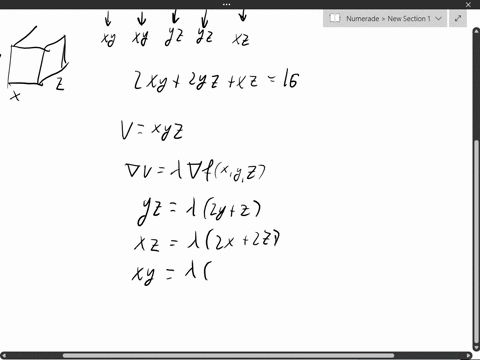 Numerade > New Section 1
xy xy yz yz xz
x z
2xy + 2yz + xz = 16
V = xyz
∇V = λ∇f(x,y,z)
yz = λ(2y+z)
xz = λ(2x+2z)
xy = λ(